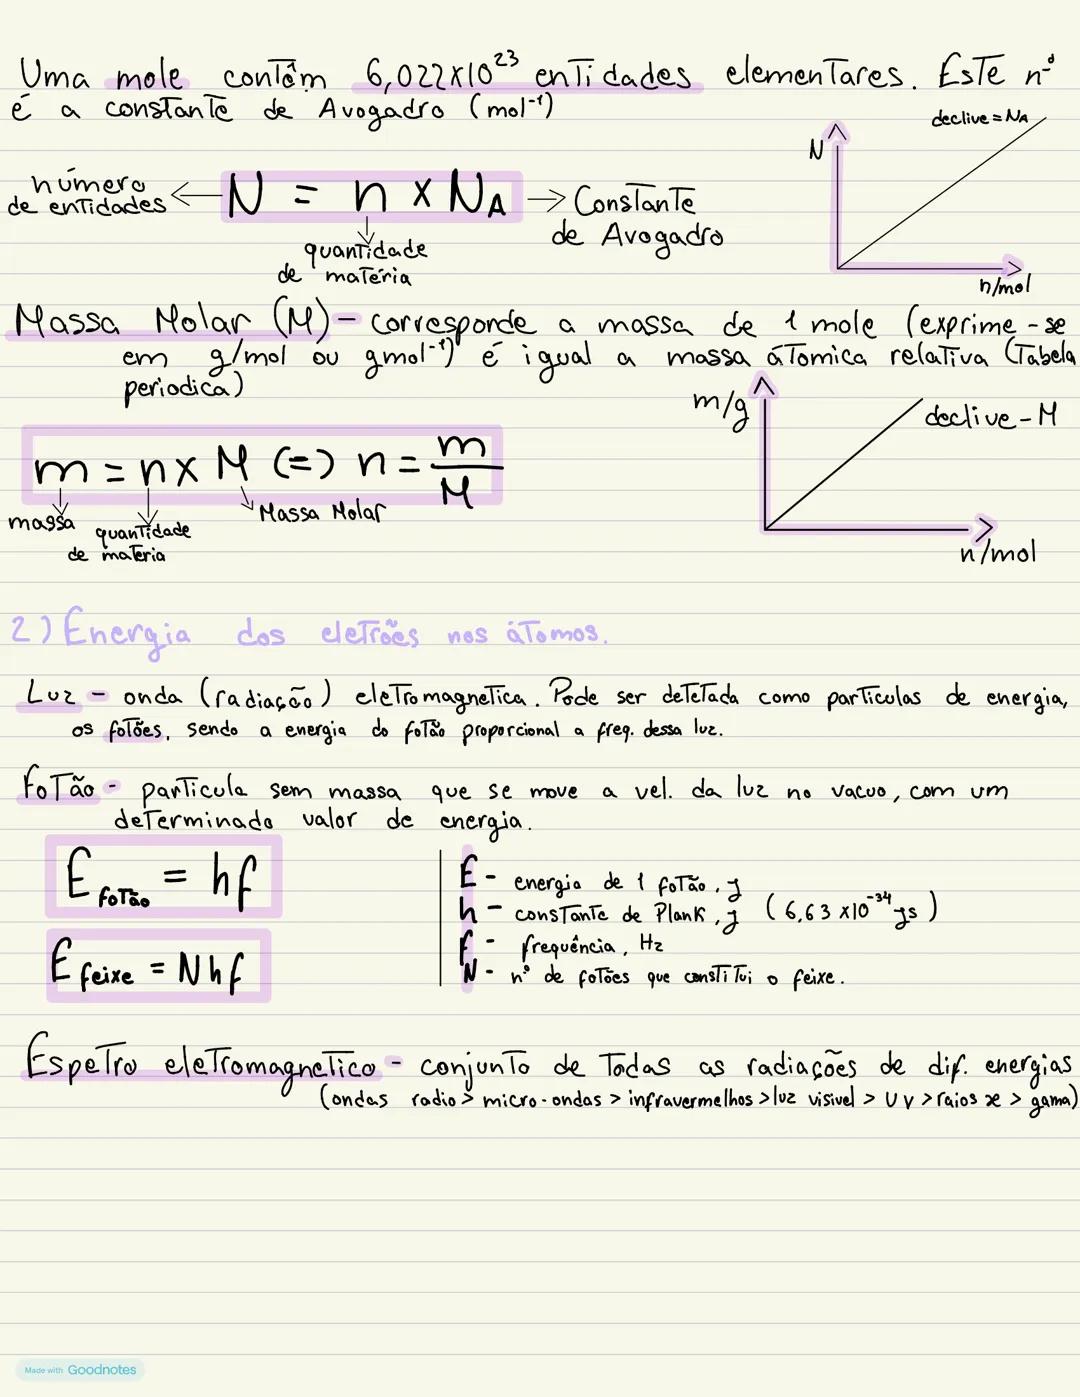 Uma mole contêm 6,022x10²³ entidades elementares. Este nº
é a constante de Avogadro (mol⁻¹)
declive = NA
N
número
de entidades ← N = n x NA → Constante
de Avogadro
quantidade
de matéria
n/mol
Massa Molar (M) - corresponde a massa de 1 mole (exprime-se
em g/mol ou gmol⁻¹) é igual a massa átomica relativa (Tabela
periodica)
m/g
declive - M
m = n x M (=) n = m/M
massa
quantidade
de materia
Massa Molar
n/mol
2) Energia dos eletrões nos átomos.
Luz - onda (radiação) eletromagnetica. Pode ser detetada como particulas de energia,
os fotões, sendo a energia do fotão proporcional a freq. dessa luz.
Fotão - particula sem massa que se move a vel. da luz no vacuo, com um
determinado valor de energia.
E fotão = hf
E feixe = Nhf
E - energia de 1 fotão, J
h - constante de Plank, J (6,63 x10⁻³⁴ Js)
f - frequência, Hz
N - nº de fotões que constitui o feixe.
Espetro eletromagnetico - conjunto de Todas as radiações de dif. energias
(ondas radio > micro-ondas > infravermelhos > luz visivel > UV > raios x > gama)
Made with Goodnotes